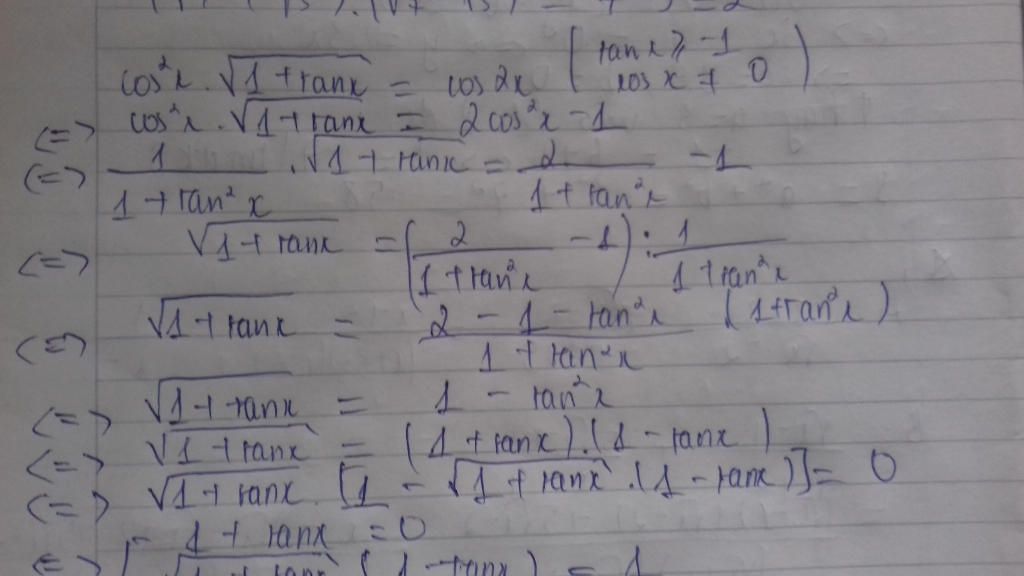 cos²x . √(1 + tanx) = cos2x ( tanx ≥ -1
cos x ≠ 0 )
<=> cos²x . √(1 + tanx) = 2cos²x - 1
<=> 1/(1 + tan²x) . √(1 + tanx) = 2/(1 + tan²x) - 1
<=> √(1 + tanx) = (2/(1 + tan²x) - 1) : 1/(1 + tan²x)
<=> √(1 + tanx) = (2 - 1 - tan²x)/(1 + tan²x) (1 + tan²x)
<=> √(1 + tanx) = 1 - tan²x
<=> √(1 + tanx) = (1 + tanx).(1 - tanx)
<=> √(1 + tanx) . [1 - √(1 + tanx) .(1 - tanx)] = 0
<=> [ 1 + tanx = 0
√(1 + tanx) (1 - tanx) = 1